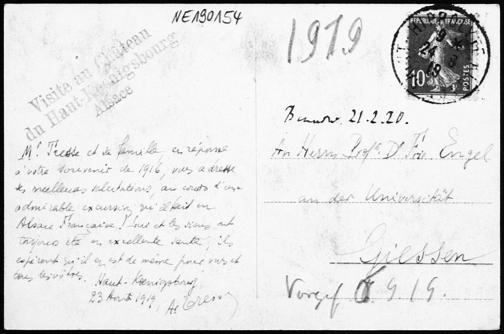 NE190154
1919
Visite au Château
du Haut-Kœnigsbourg
Alsace
REPUBLIQUE FRANÇAISE
10
POSTES
21.2.20.
An Herrn Prof. Dr Engel
an der Universität
Giessen
9.19.
Mr Tresse et sa famille en réponse
à votre souvenir de 1916, vous adresse
ses meilleures salutations, au cours d'une
admirable excursion, qu'il fait en
Alsace Française! Lui et les siens ont
toujours été en excellente santé, ils
espèrent qu'il en est de même pour vous et
tous les vôtres.
Haut-Kœnigsbourg
23 Août 1919